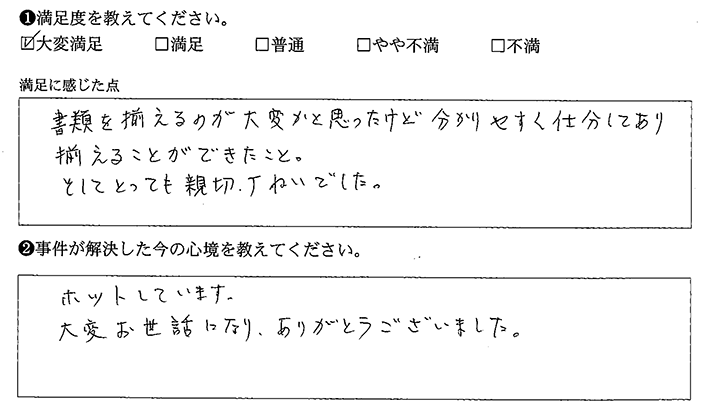 ❶満足度を教えてください。
☑大変満足 □満足 □普通 □やや不満 □不満
満足に感じた点
書類を揃えるのが大変かと思ったけど分かりやすく仕分してあり
揃えることができたこと。
そしてとっても親切、丁ねいでした。
❷事件が解決した今の心境を教えてください。
ホットしています。
大変お世話になり、ありがとうございました。